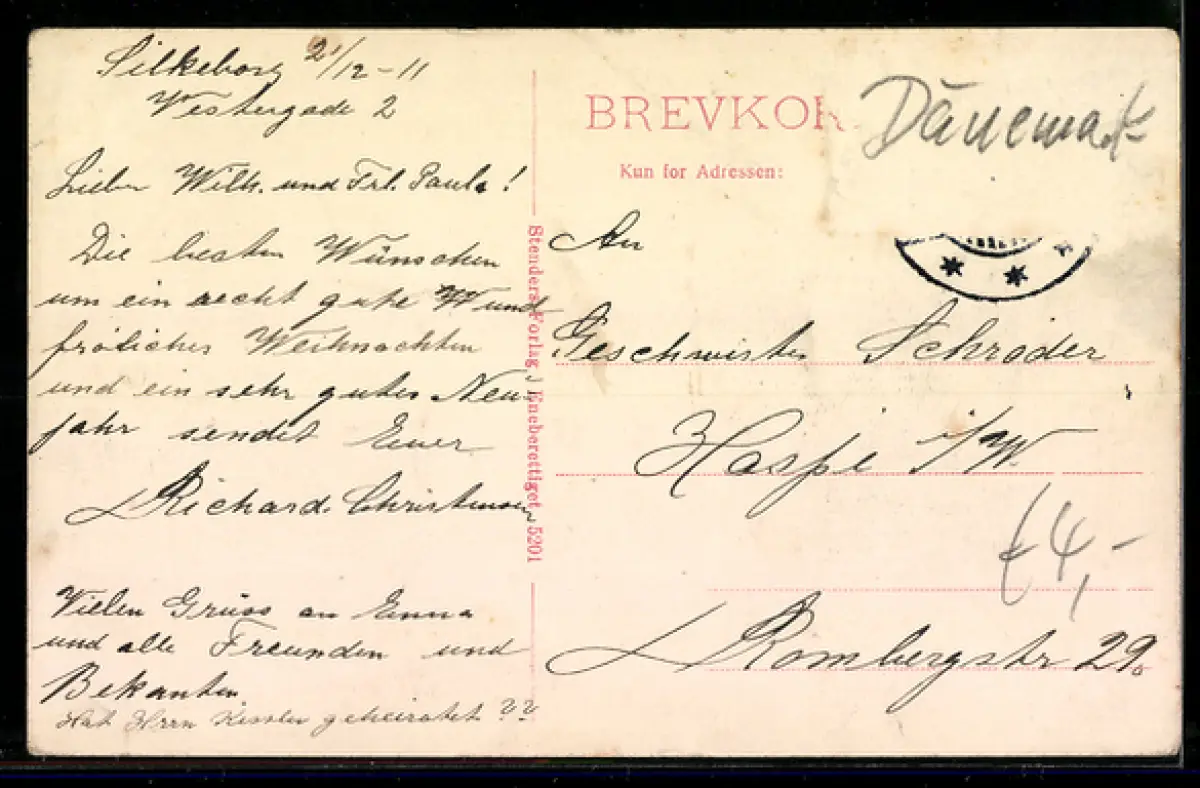 Silkeborg 21/12-11
Vestergade 2
Lieber Wilh. und Frl. Paula!
Die besten Wünschen
um ein recht gute W und
fröliches Weihnachten
und ein sehr gutes Neu-
jahr sendet Euer
Richard Christensen
Vielen Grüss an Emma
und alle Freunden und
Bekanten
Hat Herrn Kessler geheiratet ??
Stenders Forlag, Eneberettiget 5201
BREVKOR
Dänemark
Kun for Adressen:
An
Geschwister Schröder
Haspe i/W.
€4,-
Rombergstr 29.